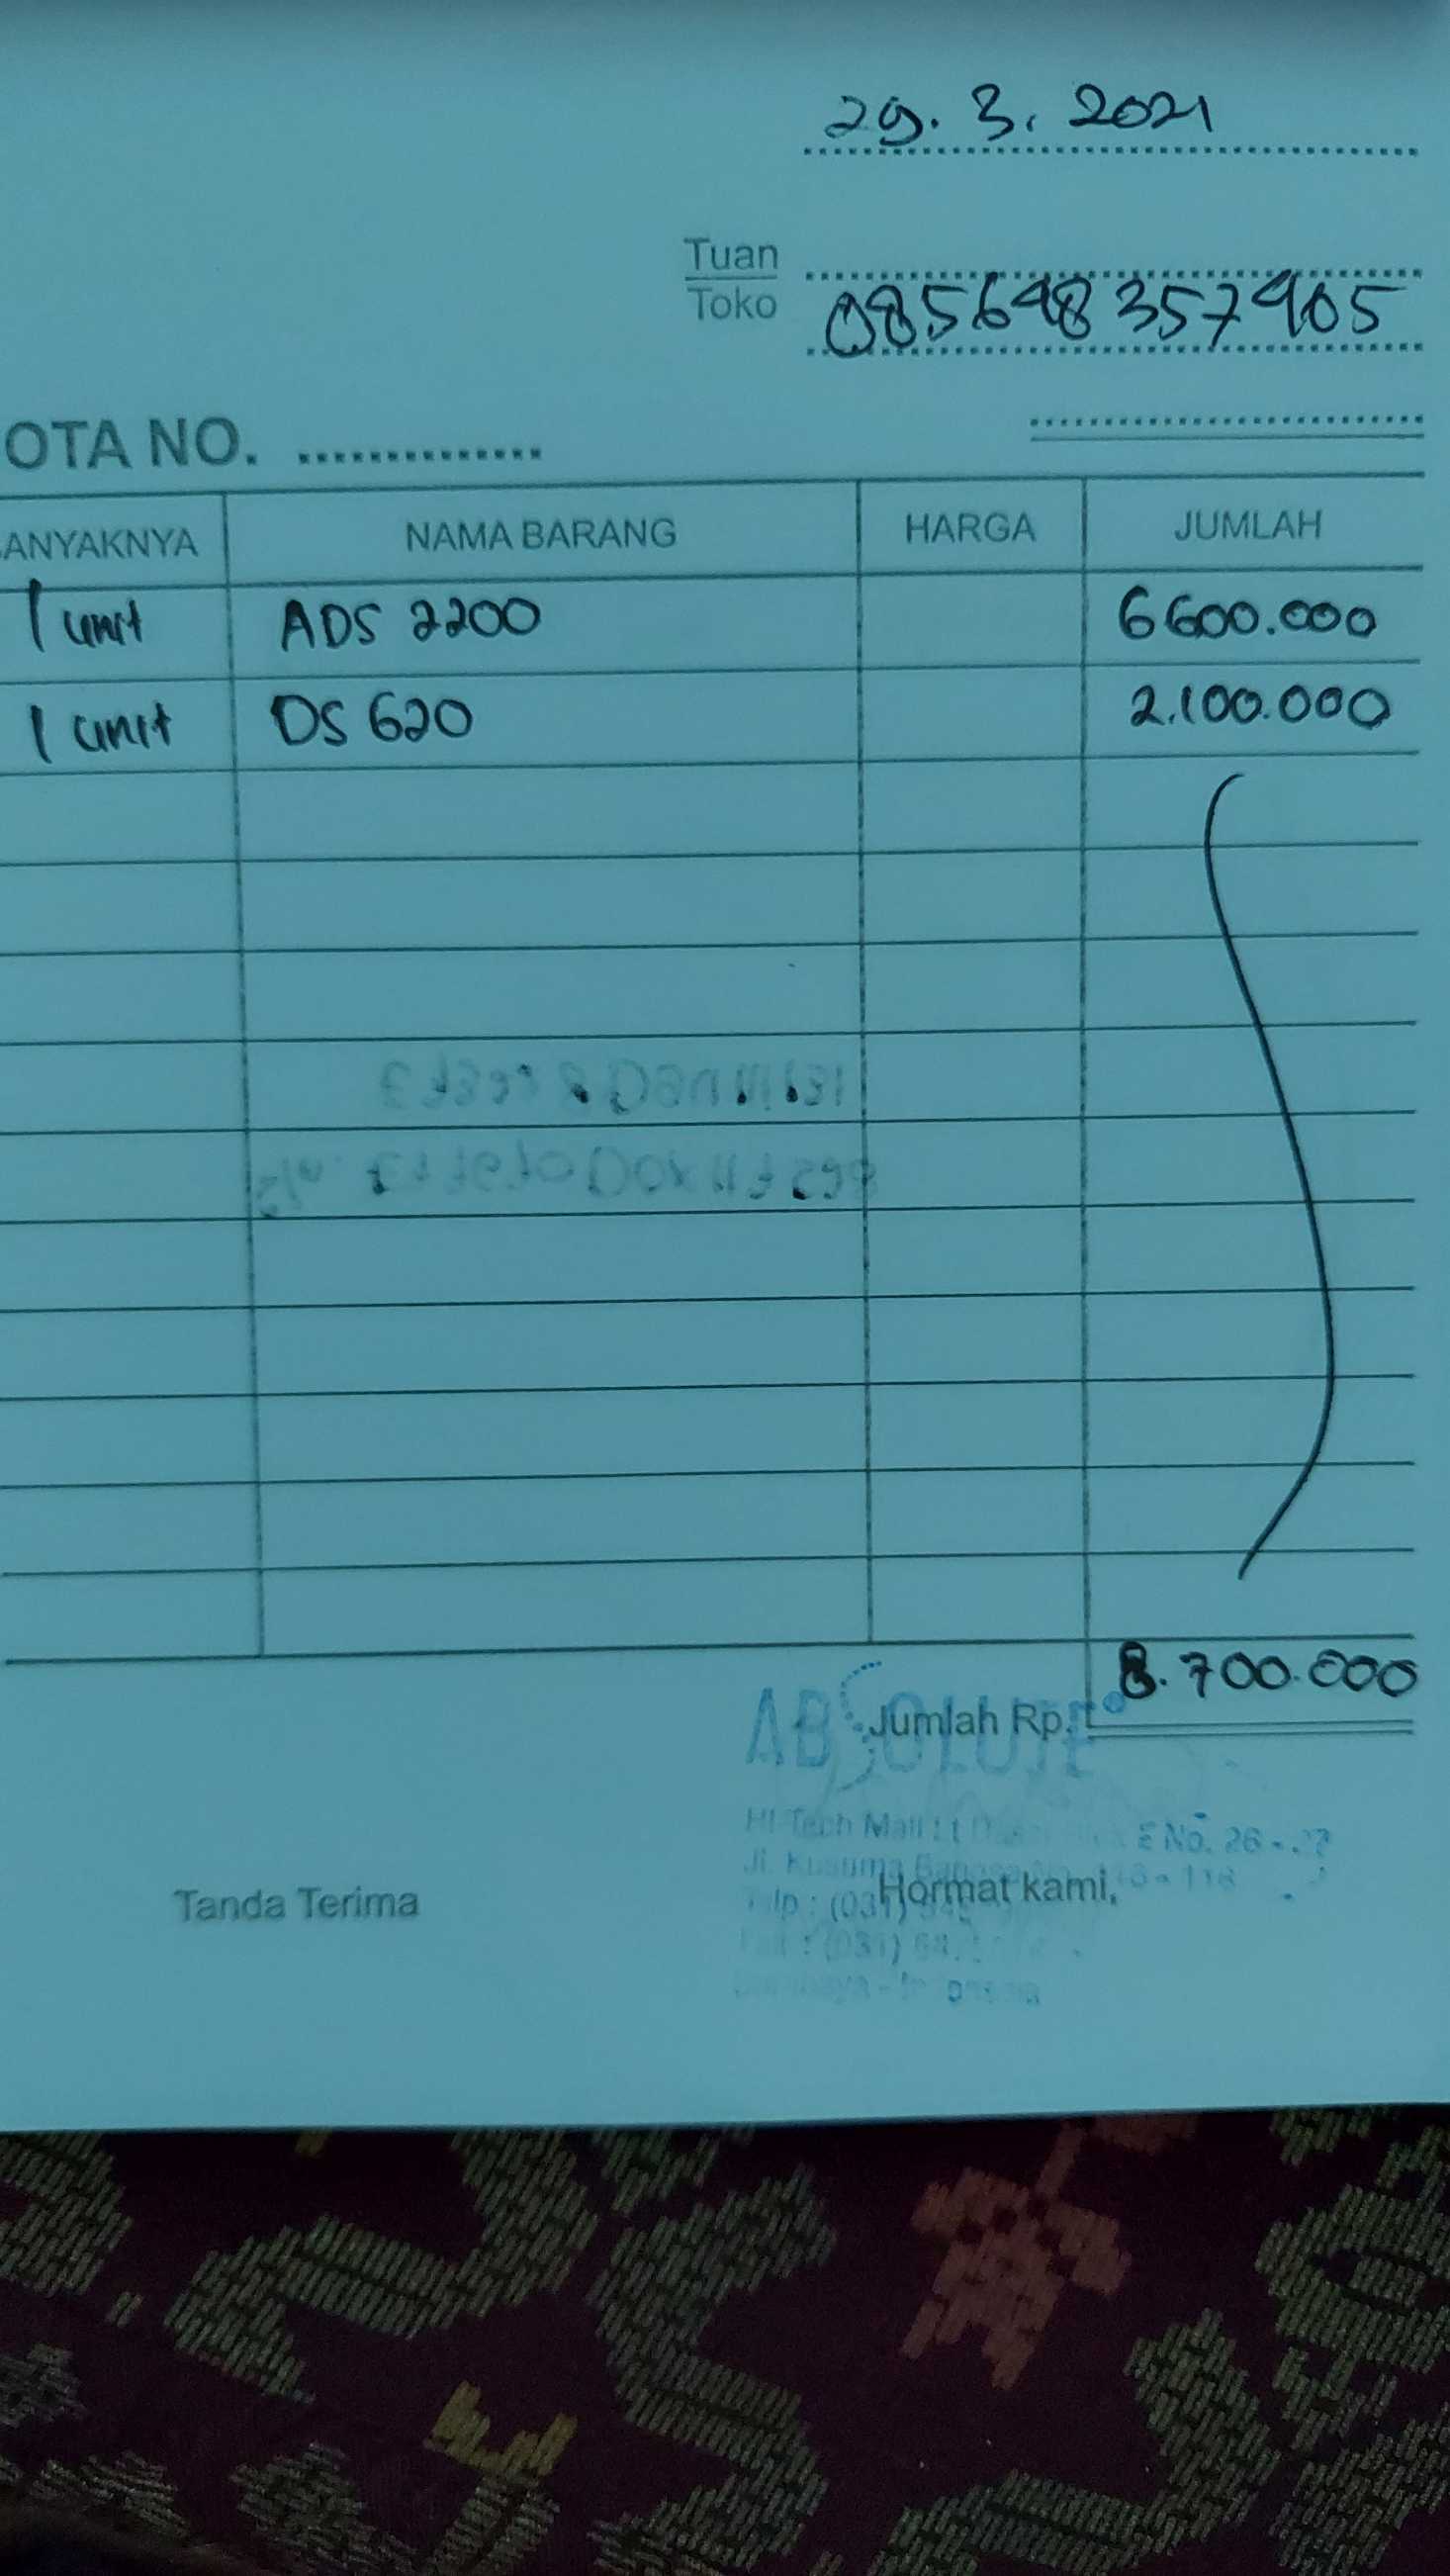 29. 3. 2021
Tuan
Toko
085648357905
OTA NO. ..............
ANYAKNYA NAMA BARANG HARGA JUMLAH
1 unit ADS 2200 6600.000
1 unit DS 620 2.100.000
8.700.000
Jumlah Rp.
ABSOLUTE
HI Tech Mall Lt E No. 26 -
Jl. Kusuma Bangsa - 118
Tanda Terima Hormat kami,
Telp : (031)
: (031)